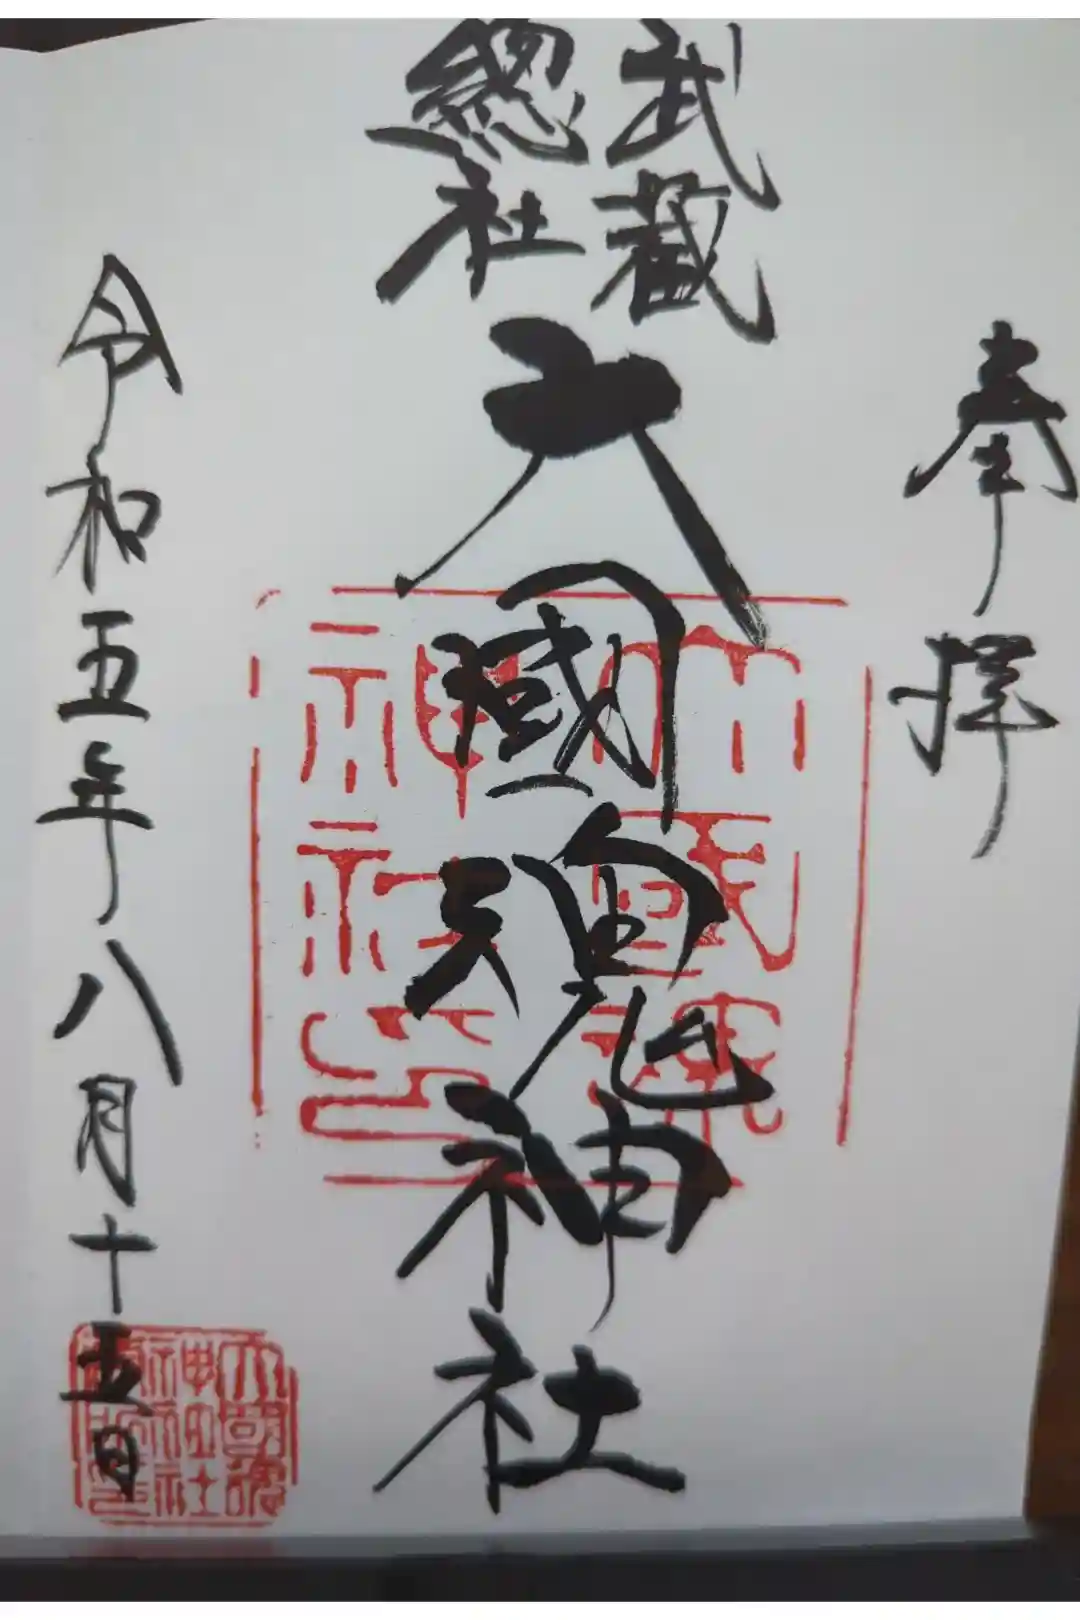 奉拝
武蔵
総社
六國魂神社
令和五年八月十五日